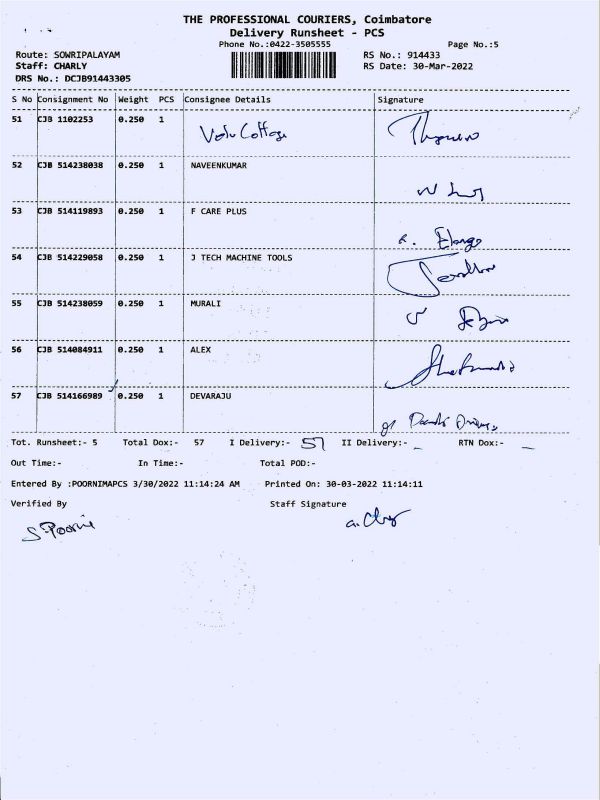 THE PROFESSIONAL COURIERS, Coimbatore
Delivery Runsheet - PCS
Phone No.:0422-3505555 Page No.:5
Route: SOWRIPALAYAM RS No.: 914433
Staff: CHARLY RS Date: 30-Mar-2022
DRS No.: DCJB91443305
S No Consignment No Weight PCS Consignee Details Signature
51 CJB 1102253 0.250 1
52 CJB 514238038 0.250 1 NAVEENKUMAR
53 CJB 514119893 0.250 1 F CARE PLUS
54 CJB 514229058 0.250 1 J TECH MACHINE TOOLS
55 CJB 514238059 0.250 1 MURALI
56 CJB 514084911 0.250 1 ALEX
57 CJB 514166989 0.250 1 DEVARAJU
Tot. Runsheet:- 5 Total Dox:- 57 I Delivery:- 57 II Delivery:- - RTN Dox:- -
Out Time:- In Time:- Total POD:-
Entered By :POORNIMAPCS 3/30/2022 11:14:24 AM Printed On: 30-03-2022 11:14:11
Verified By Staff Signature
S.Poorni